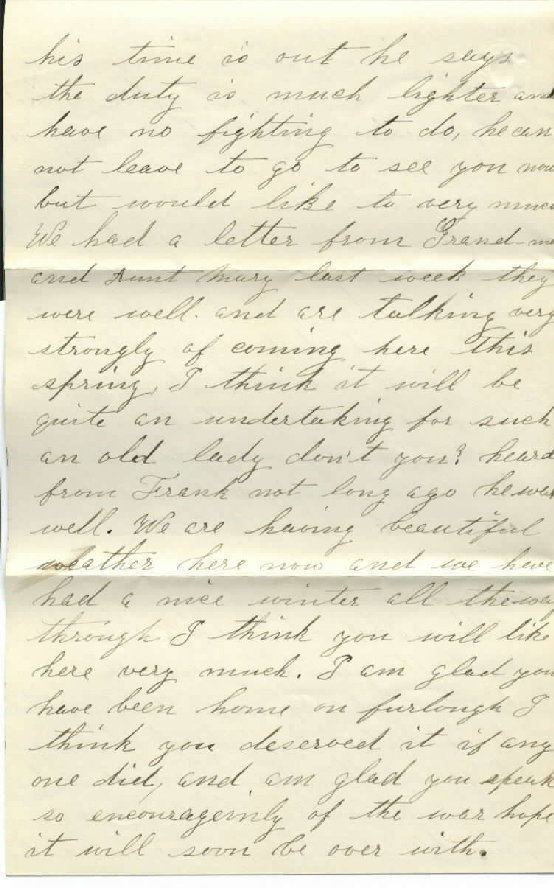 his time is out he says
the duty is much lighter and
have no fighting to do, he can
not leave to go to see you now
but would like to very much
We had a letter from Grand ma
and Aunt Mary last week they
were well. and are talking very
strongly of coming here this
spring, I think it will be
quite an undertaking for such
an old lady don't you? heard
from Frank not long ago he was
well. We are having beautiful
weather here now and we have
had a nice winter all the way
through I think you will like
here very much. I am glad you
have been home on furlough I
think you deserved it if any
one did, and am glad you speak
so encourageinly of the war hope
it will soon be over with.